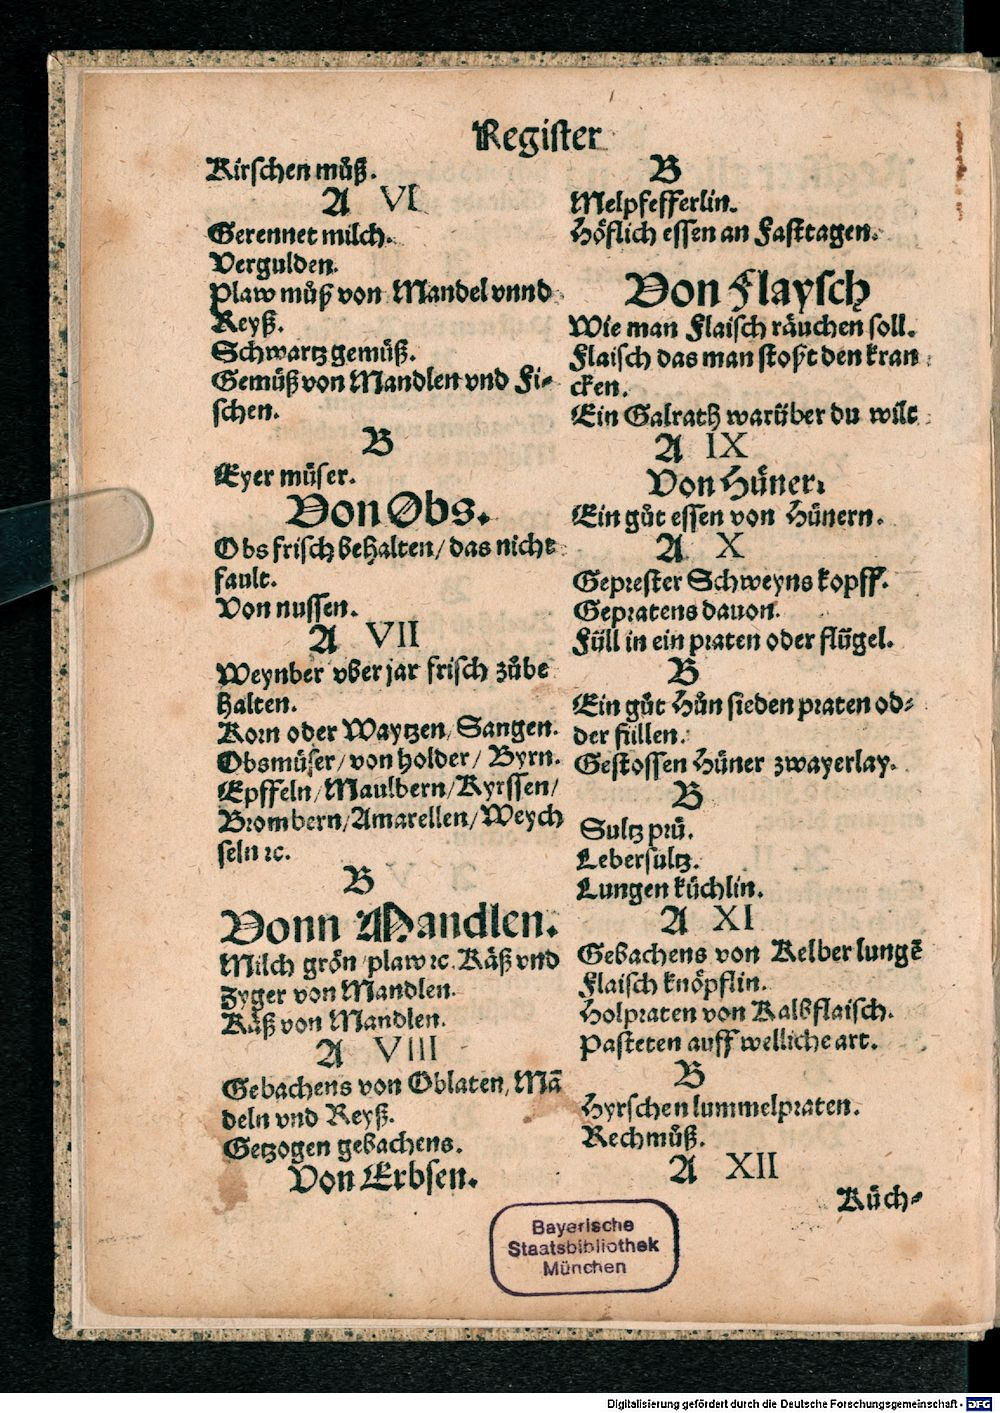 Register
Kirschen můß.
A VI
Gerennet milch.
Vergulden.
Plaw můß von Mandel vnnd
Reyß.
Schwartz gemůß.
Gemůß von Mandlen vnd Fi-
schen.
B
Eyer můser.
Von Obs.
Obs frisch behalten/ das nicht
fault.
Von nussen.
A VII
Weynber vber jar frisch zůbe
halten.
Korn oder Waytzen/ Sangen.
Obsmůser/ von holder/ Byrn.
Epffeln/ Maulbern/ Kyrssen/
Brombern/ Amarellen/ Weych
seln ꝛc.
B
Vonn Mandlen.
Milch grön/ plaw ꝛc. Käß vnd
Zyger von Mandlen.
Käß von Mandlen.
A VIII
Gebachens von Oblaten, Mā
deln vnd Reyß.
Getzogen gebachens.
Von Erbsen.
B
Melpfefferlin.
Höflich essen an Fasttagen.
Von Flaysch
Wie man Flaisch räuchen soll.
Flaisch das man stoßt den kran
cken.
Ein Galrath warüber du wilt
A IX
Von Hüner.
Ein gůt essen von Hünern.
A X
Geprester Schweyns kopff.
Gepratens dauon.
Füll in ein praten oder flügel.
B
Ein gůt Hůn sieden praten od-
der füllen.
Gestossen Hüner zwayerlay.
B
Sultz prü.
Lebersultz.
Lungen küchlin.
A XI
Gebachens von Kelber lungē
Flaisch knöpflin.
Holpraten von Kalbflaisch.
Pasteten auff welliche art.
B
Hyrschen lummelpraten.
Rechmůß.
A XII
Küch-
Bayerische
Staatsbibliothek
München
Digitalisierung gefördert durch die Deutsche Forschungsgemeinschaft - DFG